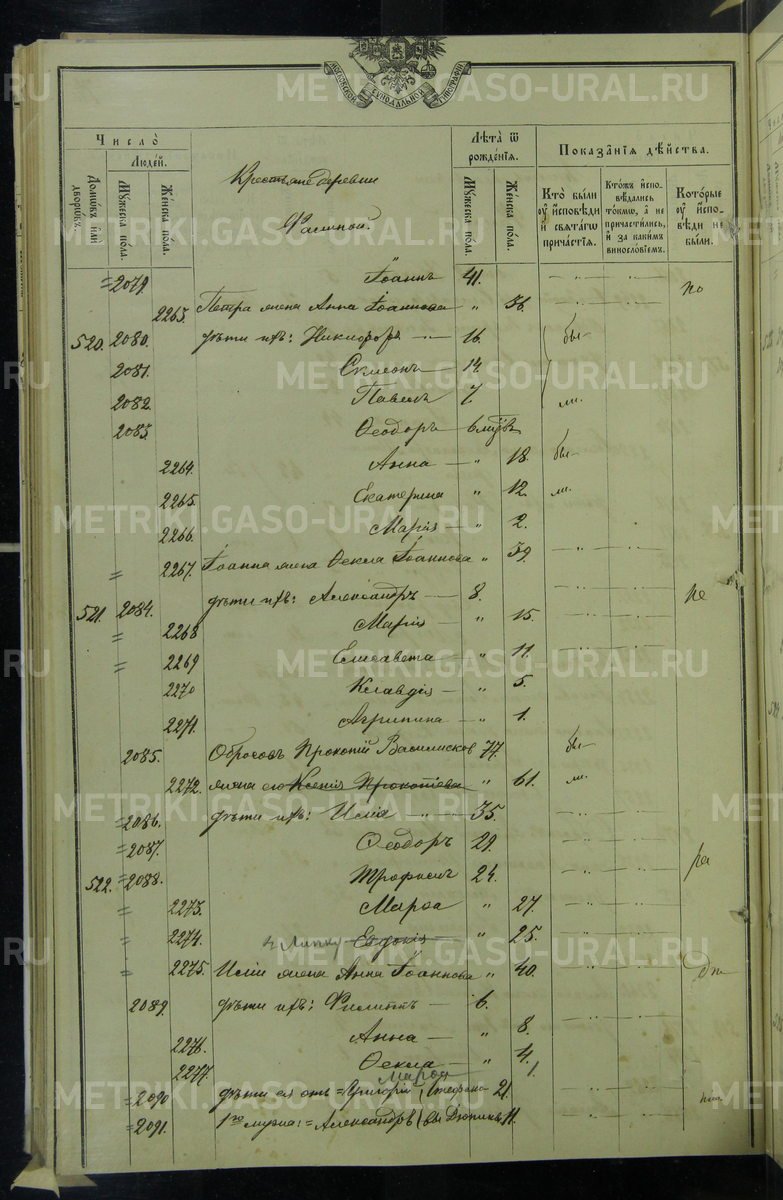 МОСКОВСКОЙ СѴНОДАЛЬНОЙ ТИПОГРАФІИ
METRIKI.GASO-URAL.RU
Число̀
Людей.
Домовъ или дворовъ.
Мужеска пола.
Женска пола.
Крестьяне деревни
Фалиной.
Лѣта ѿ рожденія.
Мужеска пола.
Женска пола.
Показанія дѣйства.
Кто̀ были оу исповѣди и святагѡ причастія.
Кто́жъ исповѣдались токмѡ, а не причастились, и за какимъ винословіемъ.
Которые оу исповѣди не были.
2079 Іоаннъ 41. по
2263. Петра жена Анна Іоаннова " 36.
520. 2080. дѣти ихъ: Никифоръ — 16. бы
2081. Симеонъ — 14.
2082. Павелъ 7. ли.
2083 Ѳеодоръ 6 мцевъ
2264. Анна — " 18. бы
2265. Екатерина " 12. ли.
2266. Марія — " 2.
2267. Іоанна жена Ѳекла Іоаннова " 39.
521. 2084. дѣти ихъ: Александръ — 8. не
2268 Марія — " 15.
2269 Елисавета — " 11.
2270 Клавдія — " 5.
2271. Агрипина — " 1.
2085. Обросовъ Прокопій Василисков 77. бы
2272. жена его Ксенія Прокопіева " 61. ли.
2086. дѣти ихъ: Исаія — " — 35.
2087. Ѳеодоръ 29.
522. 2088. Трофимъ 24. ра
2273. Марѳа " 27.
2274. Евдокія " 25.
2275. Исаіи жена Анна Іоаннова " 40.
2089. дѣти ихъ: Филиппъ — 6.
2276. Анна — " 8.
2277. Ѳекла — " 4.
Марѳа 1.
2090 дѣти ея отъ = Григорій Стефано 21.
2091. 1го мужа: = Александръ вы 11.